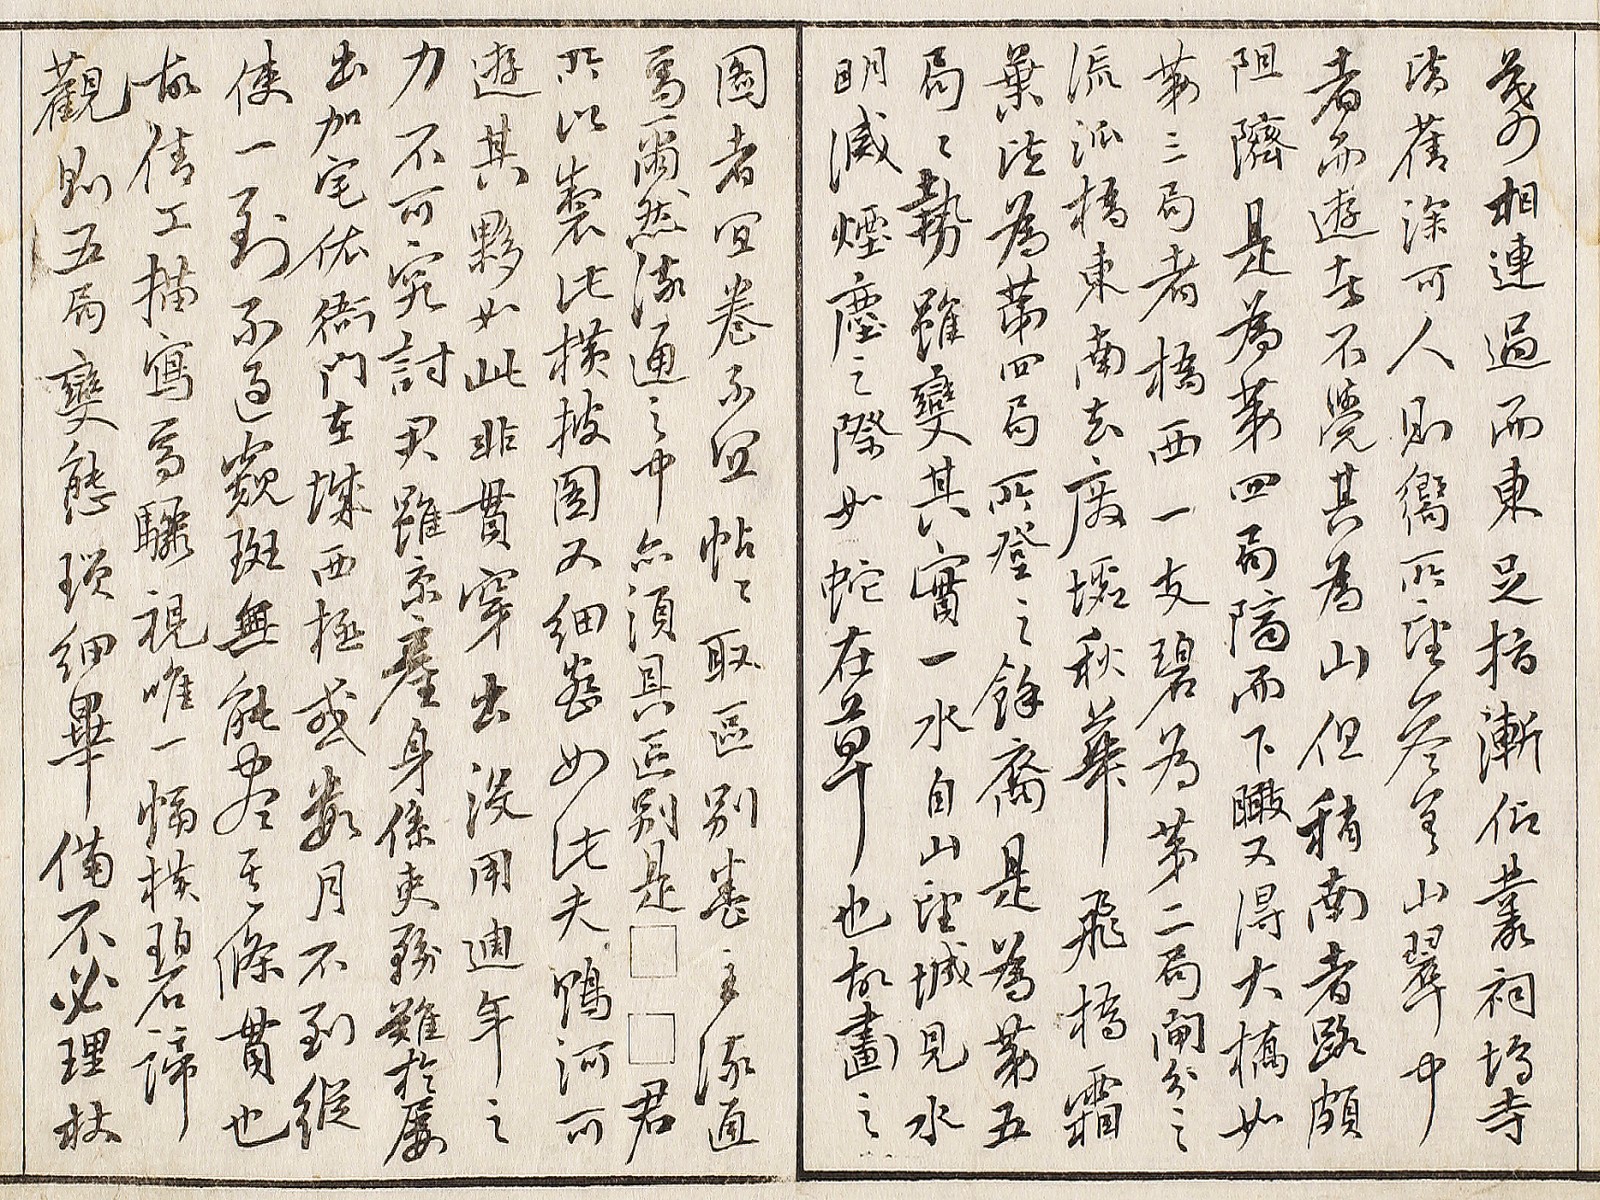 幾郊相連過而東足指漸仰叢祠塢寺
清舊深可人則嚮所望蒼翠山翠中
者而遊者不覺其為山但稍南者路頗
阻隮是為第四局隔而下瞰又得大橋如
第三局者橋西一支碧為第二局閘分之
流派橋東南去廢壜秋華飛橋霜
葉法為第四局所登之餘裔是為第五
局々勢雖變其實一水自山望城見水
明滅煙塵之際如蛇在草也故畫之
圖者宜卷不宜帖々取區別卷主流通
焉爾然流通之中亦須具區別是□□君
所以製此橫披圖又細密如此夫鴨河可
遊其夥如此非貫穿出沒用連年之
力不可究討君雖京產身係吏務難於屢
出加宅依衙門在城西極或數月不到縱
使一到不過窺斑無能盡其條貫也
故倩工描寫焉驟視唯一幅橫碧諦
觀則五局變態瑣細畢備不必理杖